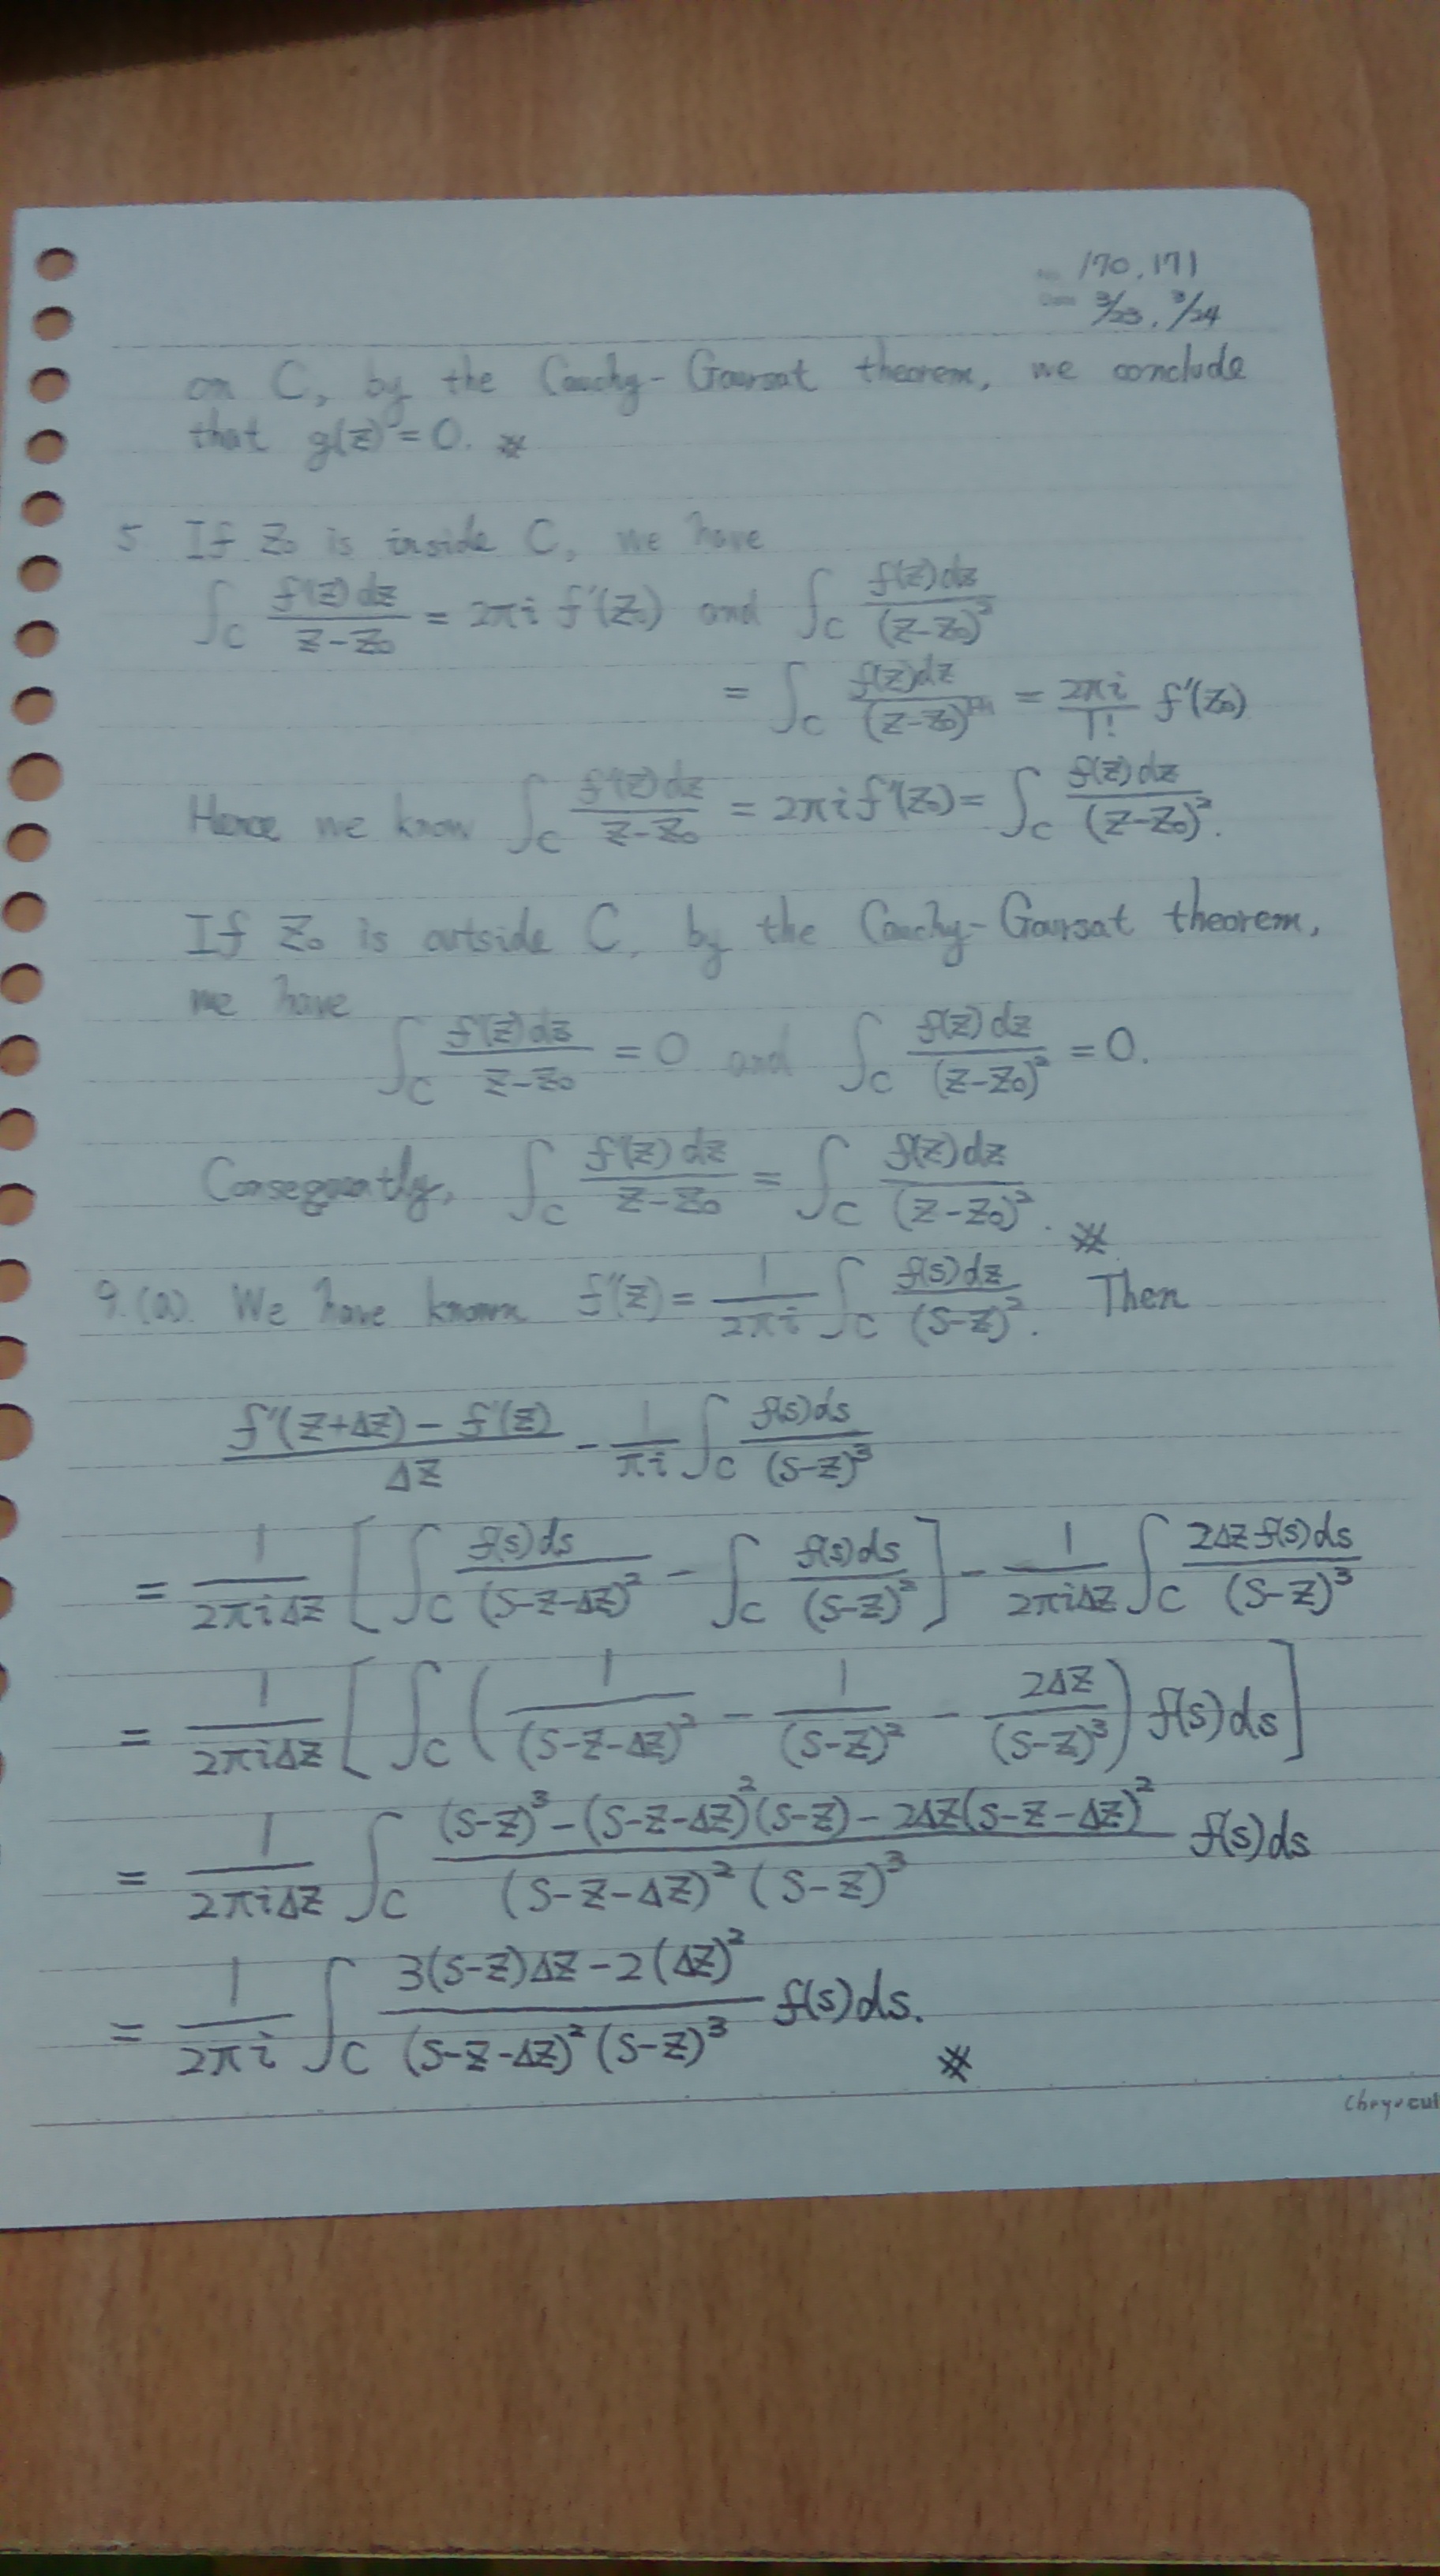 No. 170, 171
Date 3/23, 3/24
on C, by the Cauchy-Goursat theorem, we conclude
that g(z) = 0. ※
5 If z₀ is inside C, we have
∫_C f'(z)dz/(z-z₀) = 2πi f'(z₀) and ∫_C f(z)dz/(z-z₀)²
= ∫_C f(z)dz/(z-z₀)^(1+1) = 2πi/1! f'(z₀)
Hence we know ∫_C f'(z)dz/(z-z₀) = 2πi f'(z₀) = ∫_C f(z)dz/(z-z₀)².
If z₀ is outside C, by the Cauchy-Goursat theorem,
we have
∫_C f'(z)dz/(z-z₀) = 0 and ∫_C f(z)dz/(z-z₀)² = 0.
Consequently, ∫_C f'(z)dz/(z-z₀) = ∫_C f(z)dz/(z-z₀)². ※
9. (a). We have known f'(z) = 1/(2πi) ∫_C f(s)dz/(s-z)². Then
(f'(z+Δz) - f'(z))/Δz - 1/(πi) ∫_C f(s)ds/(s-z)³
= 1/(2πiΔz) [∫_C f(s)ds/(s-z-Δz)² - ∫_C f(s)ds/(s-z)²] - 1/(2πiΔz) ∫_C 2Δz f(s)ds/(s-z)³
= 1/(2πiΔz) [∫_C (1/(s-z-Δz)² - 1/(s-z)² - 2Δz/(s-z)³) f(s)ds]
= 1/(2πiΔz) ∫_C ((s-z)³ - (s-z-Δz)²(s-z) - 2Δz(s-z-Δz)²)/((s-z-Δz)²(s-z)³) f(s)ds
= 1/(2πi) ∫_C (3(s-z)Δz - 2(Δz)²)/((s-z-Δz)²(s-z)³) f(s)ds. ※